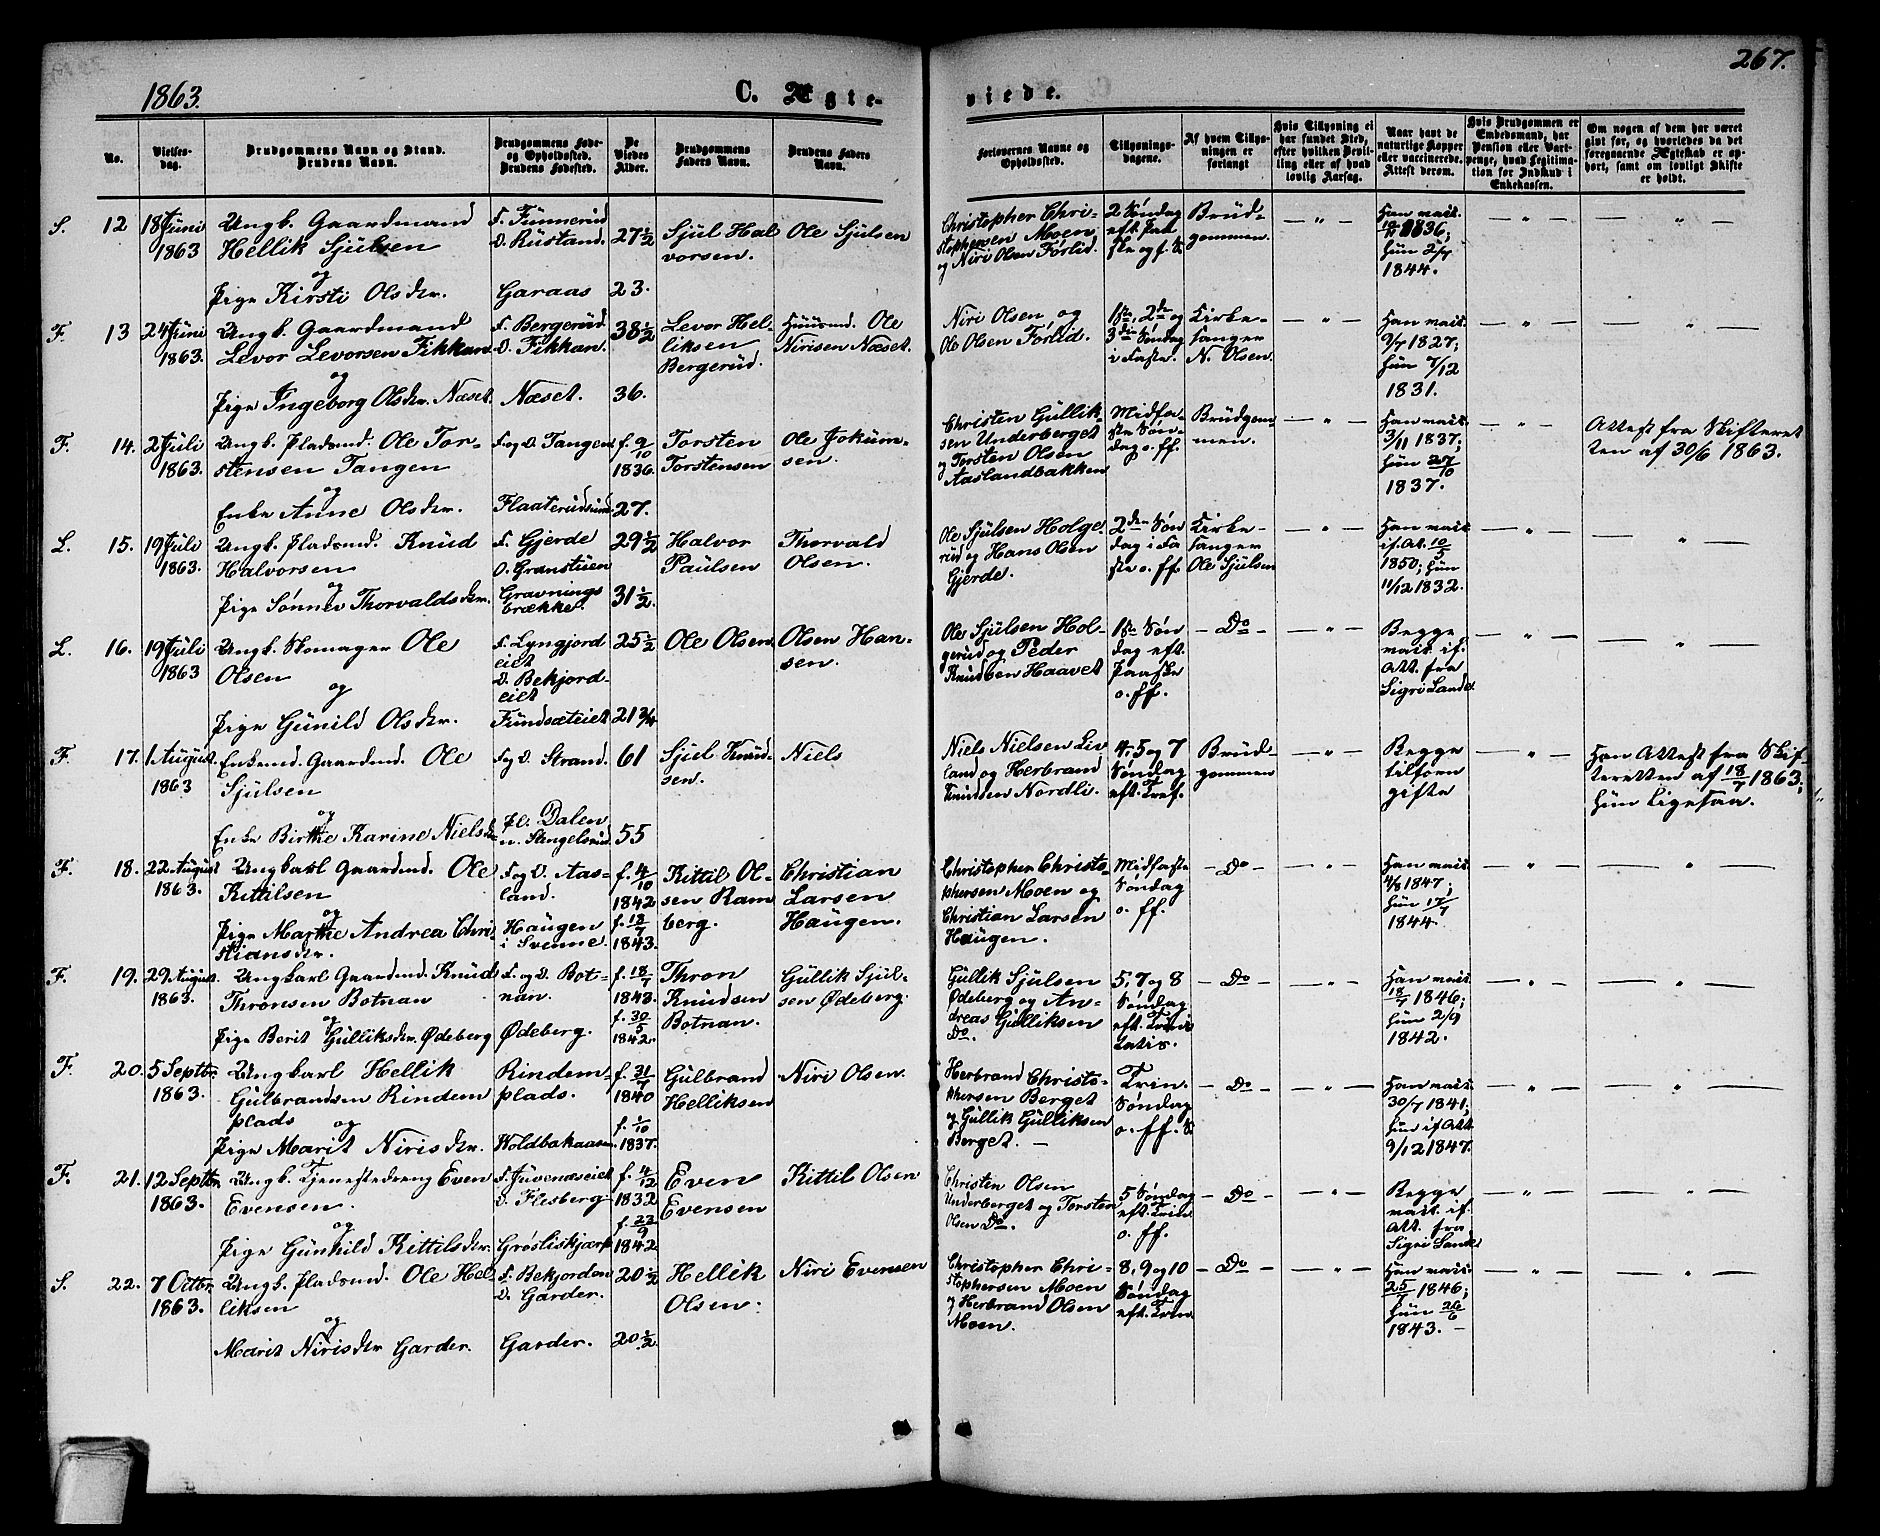 1863.
C. Ægte-
viede.
267.
No.
Vielses-
dag.
Brudgommens Navn og Stand.
Brudens Navn.
Brudgommens Føde-
og Opholdssted.
Brudens Fødested.
De
Viedes
Alder.
Brudgommens
Faders Navn.
Brudens Faders
Navn.
Forlovernes Navne og
Opholdssted.
Tillysnings-
dagene.
Af hvem Tillys-
ningen er
forlangt
Hvis Tillysning ei
har fundet Sted,
efter hvilken Bevil-
ling eller af hvad
lovlig Aarsag.
Naar havt de
naturlige Kopper
eller vaccinerede.
Attest derom.
Hvis Brudgommen er
Embedsmand, har
Pension eller Vart-
penge, hvad Legitima-
tion for Indskud i
Enkekassen.
Om nogen af dem har været
gift før, og hvorledes da det
foregaaende Ægteskab er op-
hørt, samt om lovligt Skifte
er holdt.
S. 12 18 Juni
1863
Ungk. Gaardmand
Hellik Sjulsen
og
Pige Kirsti Olsdr.
F. Funnerud
O. Rustand.
Garaas
27½
23.
Sjul Hal
vorsen.
Ole Sjulsen
Christopher Chri-
stophersen Moen
og Niri Olsen Forlid.
2 Søndag
eft. Paa
ske og f. S.
Brud-
gommen.
— " —
Han vacc.
1836;
hun 2/7
1844.
— " —
— " —
F. 13 24 Juni
1863.
Ungk. Gaardmand
Levor Levorsen Fikkan
og
Pige Ingeborg Olsdr. Næset.
F. Bergerud
O. Fikkan.
Næset.
38½
36.
Levor Hel-
liksen
Bergerud.
Huusmd. Ole
Nirisen Næset.
Niri Olsen og
Ole Olsen Forlid.
1ste, 2de og
3die Søndag
i Faste.
Kirke-
sanger
N. Olsen.
— " —
Han vacc.
9/7 1827;
hun 7/12
1831.
— " —
— " —
F. 14. 2 Juli
1863.
Ungk. Pladsmd. Ole Tor-
stensen Tangen
og
Enke Anne Olsdr.
F. og O. Tangen
Flaaterudeiet
f. 9/10
1836
27.
Torsten
Torstensen
Ole Jokum-
sen.
Christen Gullik-
sen Underberget
og Torsten Olsen
Aaslandbakken
Midfa-
ste Søn-
dag o. ff.
Brudgom-
men.
— " —
Han vacc.
3/11 1837;
hun 27/10
1837.
— " —
Attest fra Skifteret
ten af 30/6 1863.
L. 15. 19 Juli
1863.
Ungk. Pladsmd. Knud
Halvorsen
og
Pige Sønnev Thorvaldsdr.
F. Gjerde
O. Granstuen
Gravnings
brække.
29½
31½.
Halvor
Paulsen
Thorvald
Olsen.
Ole Sjulsen Holge
rud og Hans Olsen
Gjerde.
2den Søn
dag i Fa
ste o. ff.
Kirke-
sanger
Ole Sjulsen
— " —
Han vacc.
if. At. 10/5
1850; hun
11/12 1832.
— " —
— " —
L. 16. 19 Juli
1863
Ungk. Skomager Ole
Olsen
og
Pige Gunild Olsdr.
F. Lyngjord
eiet
O. Bekjord-
eiet
Fundsæteiet
25½
21¾
Ole Olsen
Olsen Han-
sen.
Ole Sjulsen Hol-
gerud og Peder
Knudsen Haavet
1ste Søn
dag eft.
Paaske
o. ff.
— Do —
— " —
Begge
vacc. if.
Att. fra
Sigri Lande
— " —
— " —
F. 17. 1 August
1863
Enkemd. Gaardmd. Ole
Sjulsen
og
Enke Birthe Karine Nielsdr.
F. og O. Strand.
Pl. Dalen
u. Stengelsrud
61
55
Sjul Knud-
sen.
Niels
Niels Nielsen Liv
land og Herbrand
Knudsen Nordli.
4. 5 og 7
Søndag
eft. Tref.
Brud-
gommen
— " —
Begge
tilforn
gifte
— " —
Han Attest fra Skif-
teretten af 18/7 1863;
hun ligesaa.
F. 18. 22 August
1863.
Ungkarl Gaardmd. Ole
Kittilsen
og
Pige Marthe Andrea Chri-
stiansdr.
F. og O. Aas-
land.
Haugen
i Svenne.
f. 4/10
1842
f. 18/7
1843.
Kittil Ol-
sen Ram
berg.
Christian
Larsen
Haugen.
Christopher Christo
phersen Moen og
Christian Larsen
Haugen.
Midfaste
Søndag
o. ff.
— Do —
— " —
Han vacc.
4/8 1847;
hun 17/7
1844.
— " —
— " —
F. 19. 29 August.
1863.
Ungkarl Gaardmd. Knud
Thronsen Botnan
og
Pige Berit Gulliksdr. Ødeberg
F. og O. Bot-
nan.
Ødeberg.
f. 18/7
1843.
f. 30/5
1842.
Thron
Knudsen
Botnan.
Gullik Sjul-
sen Ødeberg.
Gullik Sjulsen
Ødeberg og An-
dreas Gulliksen
Do.
5, 7 og 8
Søndag
eft. Trini
tatis.
— Do —
— " —
Han vacc.
18/7 1846;
hun 2/9
1842.
— " —
— " —
F. 20. 5 Septbr.
1863.
Ungkarl Hellik
Gulbrandsen Rindem
plads
og
Pige Marit Nirisdr.
Rindem-
plads.
Koldbakaasen.
f. 31/7
1840
f. 1/10
1837.
Gulbrand
Helliksen
Niri Olsen.
Herbrand Christo-
phersen Berget
og Gullik Gulliksen
Berget. —
Trin.
Søndag
o. ff. S.
— Do —
— " —
Han vacc.
30/7 1841;
hun if. Att.
9/12 1847.
— " —
— " —
F. 21. 12 Septbr.
1863.
Ungk. Tjenestedreng Even
Evensen.
og
Pige Gunhild Kittilsdr.
F. Juvenæseiet
O. Flesberg
Grøsliskjærp
f. 4/12
1832
f. 23/9
1842
Even
Evensen
Kittil Olsen
Christen Olsen
Underberget og Torsten
Olsen Do.
5 Søndag
eft. Trin
o. ff.
— Do —
— " —
Begge
vacc. if.
Att. fra
Sigri Lande
— " —
— " —
S. 22. 7 Octbr.
1863.
Ungk. Pladsmd. Ole Hel-
liksen
og
Marit Nirisdr Garder.
F. Bekjorden
O. Garder.
Garder.
20½
20½
Hellik
Olsen.
Niri Evensen
Christopher Chri-
stophersen Moen
og Herbrand Olsen
Moen.
8, 9 og 10
Søndag
eft. Trin
— Do —
— " —
Han vacc.
25/7 1846;
hun 26/6
1843. —
— " —
— " —